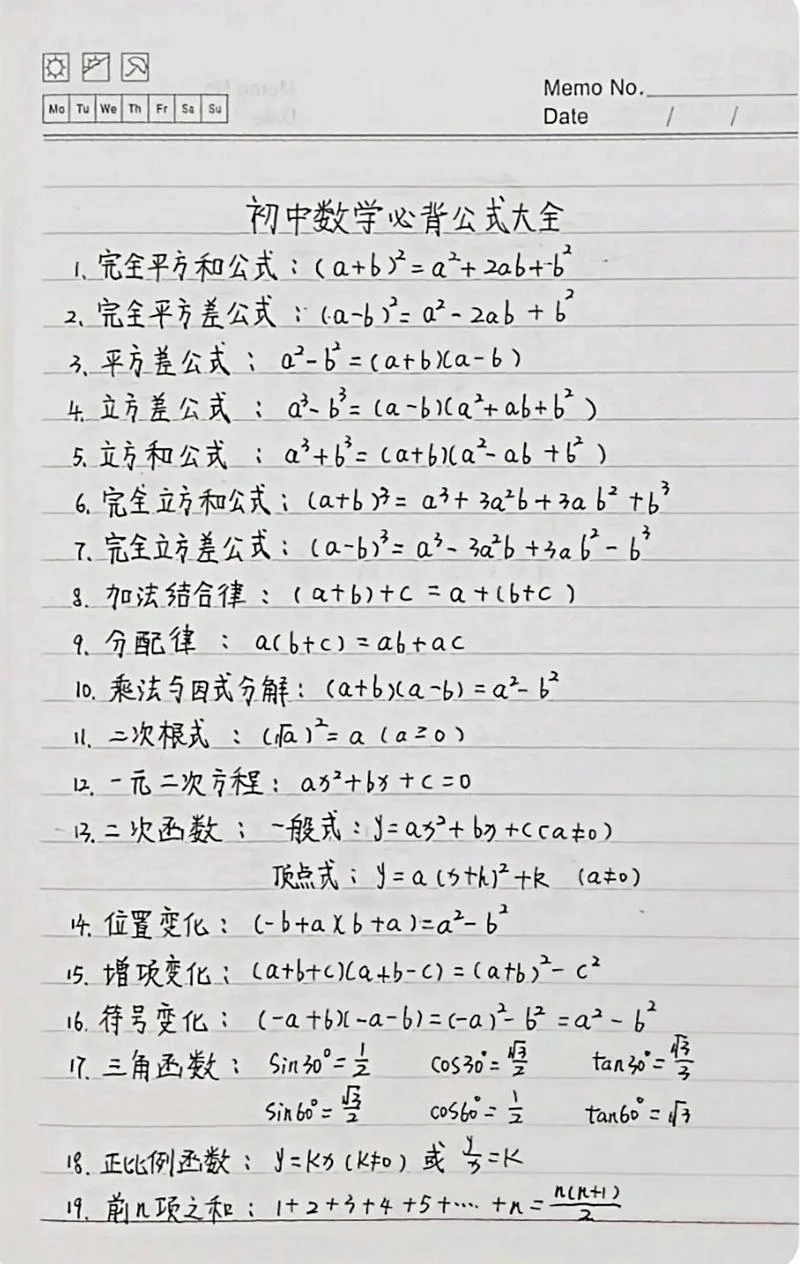 Mo Tu We Th Fr Sa Su
Memo No.
Date / /
初中数学必背公式大全
1. 完全平方和公式：(a+b)²=a²+2ab+b²
2. 完全平方差公式：(a-b)²=a²-2ab+b²
3. 平方差公式：a²-b²=(a+b)(a-b)
4. 立方差公式：a³-b³=(a-b)(a²+ab+b²)
5. 立方和公式：a³+b³=(a+b)(a²-ab+b²)
6. 完全立方和公式：(a+b)³=a³+3a²b+3ab²+b³
7. 完全立方差公式：(a-b)³=a³-3a²b+3ab²-b³
8. 加法结合律：(a+b)+c=a+(b+c)
9. 分配律：a(b+c)=ab+ac
10. 乘法与因式分解：(a+b)(a-b)=a²-b²
11. 二次根式：(√a)²=a (a≥0)
12. 一元二次方程：ax²+bx+c=0
13. 二次函数：一般式：y=ax²+bx+c(a≠0)
顶点式：y=a(x+h)²+k (a≠0)
14. 位置变化：(-b+a)(b+a)=a²-b²
15. 增项变化：(a+b+c)(a+b-c)=(a+b)²-c²
16. 符号变化：(-a+b)(-a-b)=(-a)²-b²=a²-b²
17. 三角函数：sin30°=1/2 cos30°=√3/2 tan30°=√3/3
sin60°=√3/2 cos60°=1/2 tan60°=√3
18. 正比例函数：y=kx(k≠0) 或 y/x=k
19. 前n项之和：1+2+3+4+5+……+n=n(n+1)/2